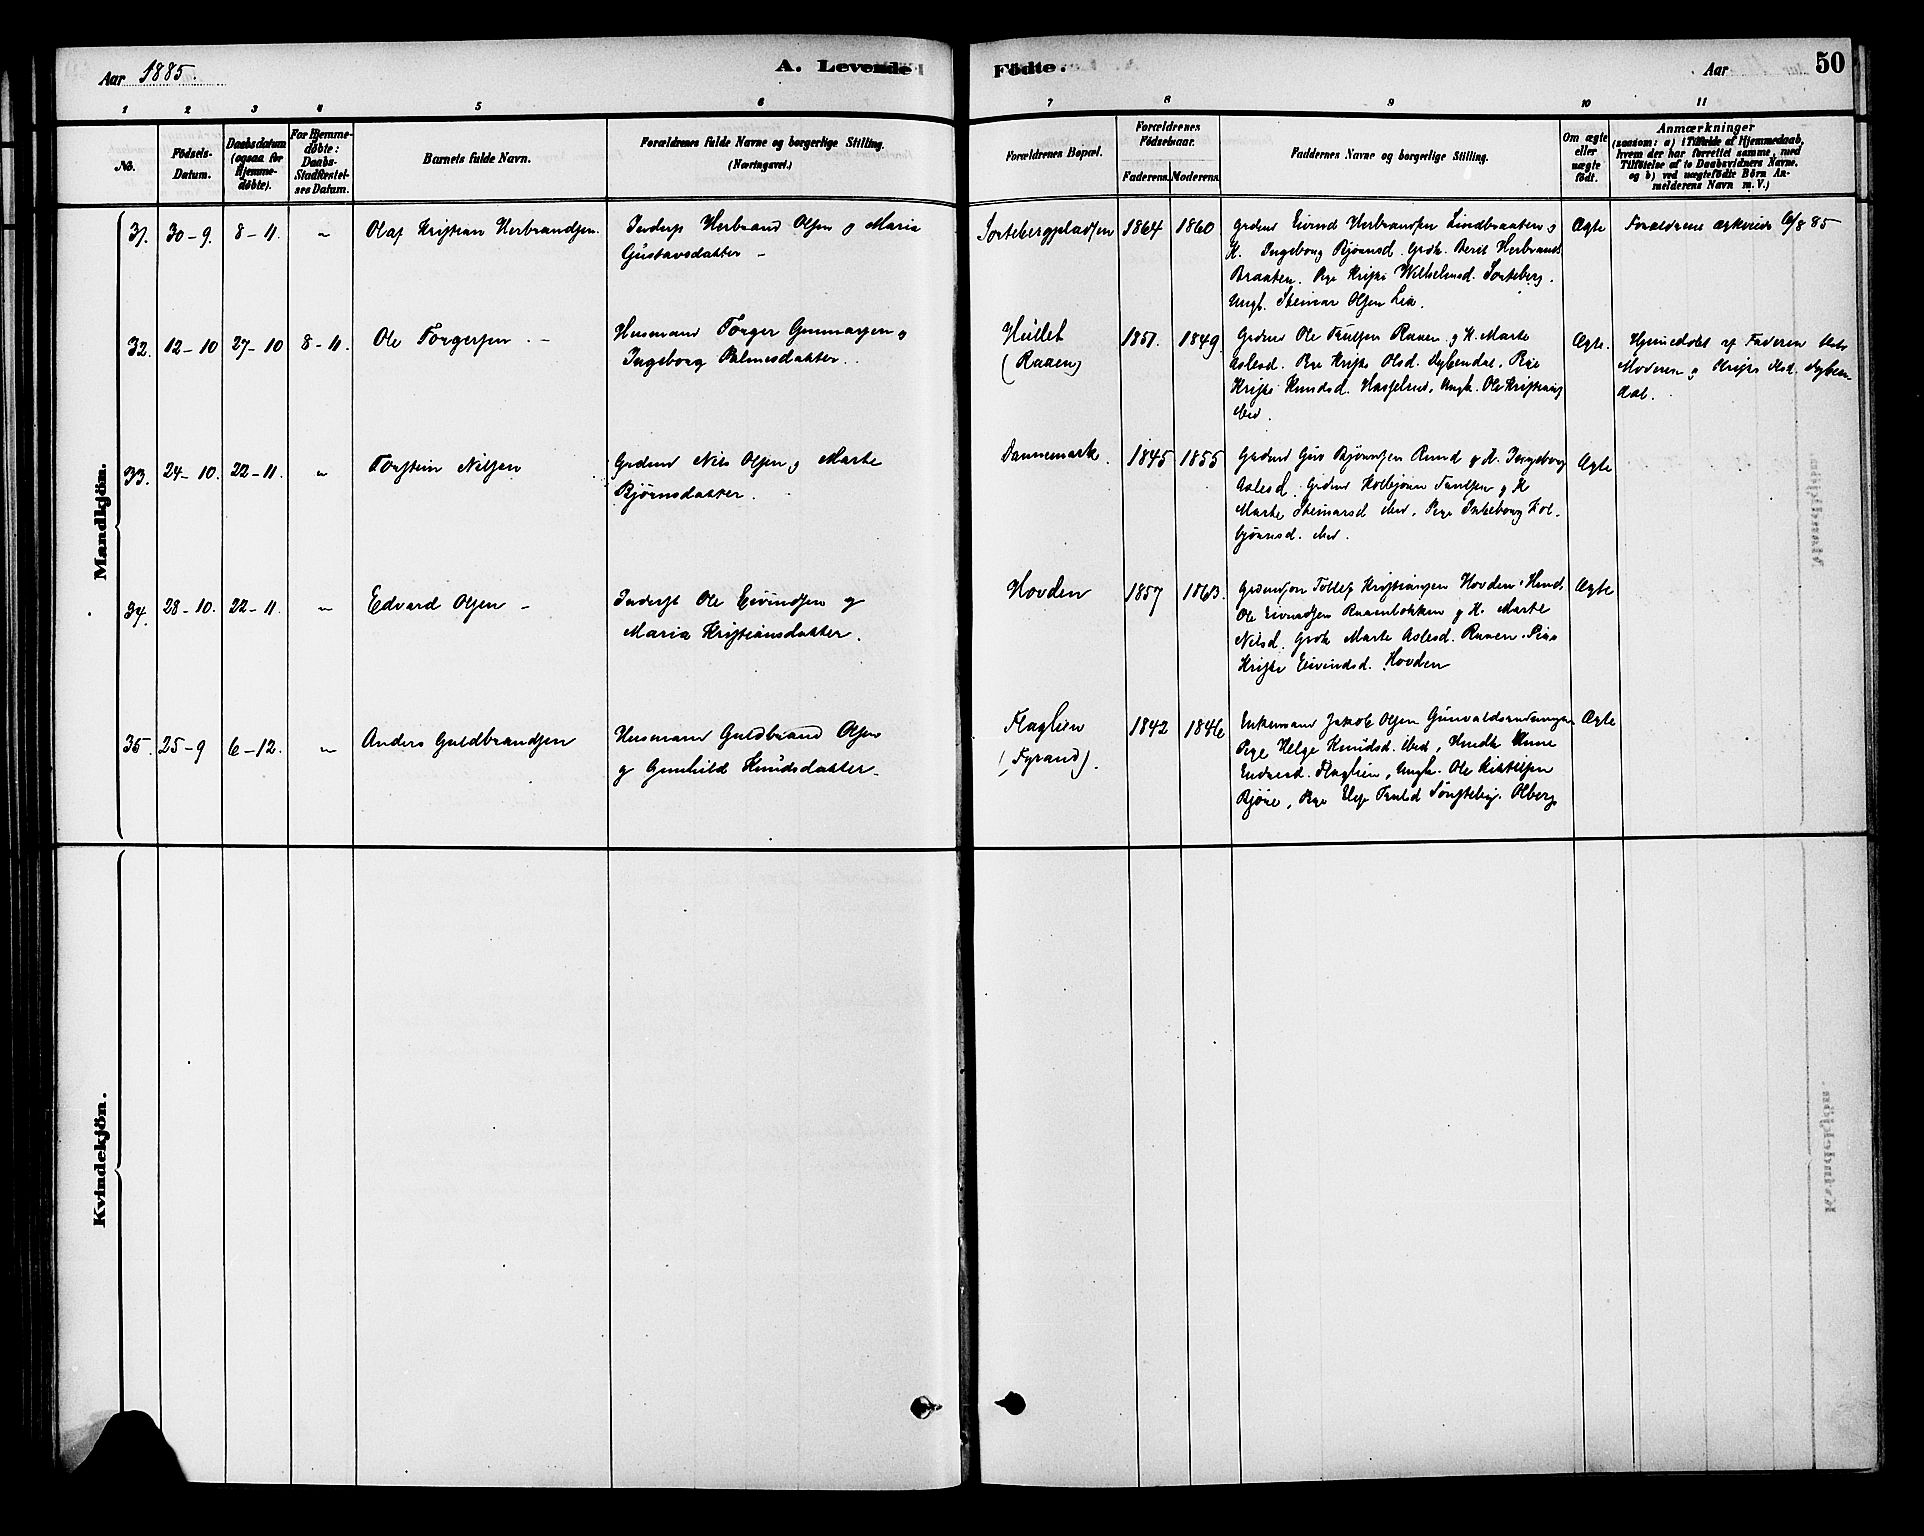 Aar 1885.
A. Levende
1 2 3 4 5 6
No.
Födsels-Datum.
Daabsdatum (ogsaa for Hjemme-döbte).
For Hjemme-döbte: Daabs-Stadfæstelses Datum.
Barnets fulde Navn.
Forældrenes fulde Navne og borgerlige Stilling. (Næringsvei.)
Mandkjön.
31. 30-9. 8-11. " Olaf Kristian Herbrandsen. Inderst Herbrand Olsen og Maria
Gustavsdatter -
32. 12-10 27-10 8-11. Ole Torgersen - Husmand Torger Gunnarsen og
Ingeborg Palmesdatter.
33. 24-10. 22-11. " Torstein Nilsen Grdmd Nils Olsen og Marte
Bjørnsdatter.
34. 28-10. 22-11. " Edvard Olsen - Inderst Ole Eivindsen og
Maria Kristiansdatter.
35. 25-9 6-12. " Anders Guldbrandsen Husmand Guldbrand Olsen
og Gunhild Knudsdatter.
Kvindekjön.
Födte.
Aar
50
7 8 9 10 11
Forældrenes Bopæl.
Forældrenes Födselsaar.
Faderens. Moderens.
Faddernes Navne og borgerlige Stilling.
Om ægte eller uægte födt.
Anmærkninger
(saasom: a) i Tilfælde af Hjemmedaab,
hvem der har forrettet samme, med
Tilföielse af to Daabsvidners Navne,
og b) ved uægtefödte Börn An-
melderens Navn m. V.)
Sortebergpladsen 1864 1860 Grdmd Eivind Herbrandsen Lindbraaten og
K. Ingeborg Bjørnsd. Grdk. Berit Herbrands
Braaten. Pge Kristi Wilhelmsd. Sorteberg.
Ungk. Steinar Olsen Lia.
Ægte Forældrene ægteviet 6/8 85
Hullet
(Raaen)
1851. 1849. Grdmd Ole Paulsen Raaen og K. Marte
Aslesd. Pge Kristi Olsd. Dybendal, Pge
Kristi Knudsd. Ungk. Ole Kristiansen
ibid.
Ægte. Hjemmedøbt af Faderen
Moderen og Kristi Olsd. Dyben-
dal.
Dannemark. 1845 1855 Grdmd Bjørnsen Rund og K. Ingeborg
Aslesd. Grdmd Kolbjørn Paulsen og K
Marte Steinarsd ibid, Pge Ingeborg Kol-
bjørnsd. ibid.
Ægte
Hovden 1857 1863. Grdmdsøn Tollef Kristiansen Hovden. Husmd.
Ole Eivindsen Raaenbakken og K. Marte
Nilsd. Grdk Marte Aslesd. Raaen. Pige
Kristi Eivindsd. Hovden
Ægte
Flaglien
(Fyrand).
1842 1846 Enkemand Jakob Olsen
Pge Helge Knudsd. ibid, Husmdk Anne
Endresd. Flaglien, Ungk. Ole Kittelsen
Bjøre, Pge Olberg
Ægte